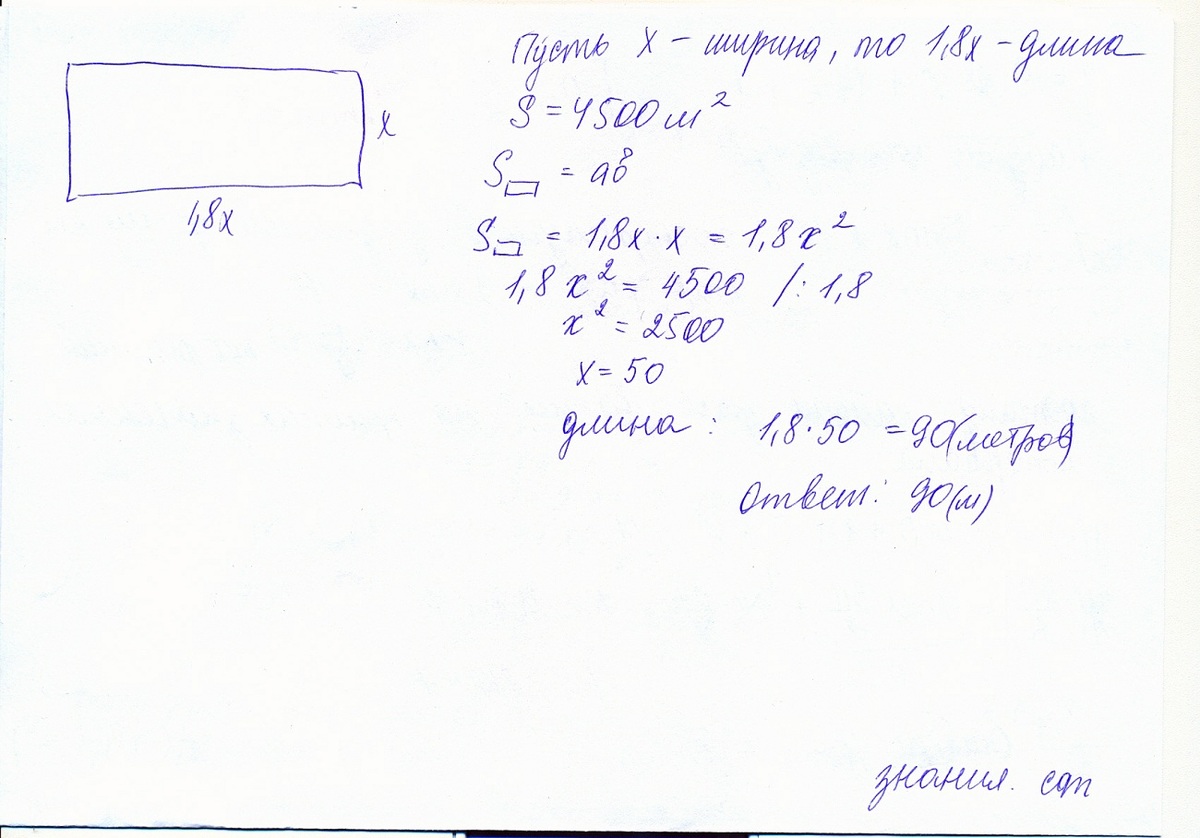 Пусть x – ширина, то 1,8x – длина
x
1,8x
S = 4500 м²
S▭ = ab
S▭ = 1,8x · x = 1,8x²
1,8x² = 4500 /: 1,8
x² = 2500
x = 50
длина : 1,8 · 50 = 90(метров)
Ответ: 90(м)
знания. com